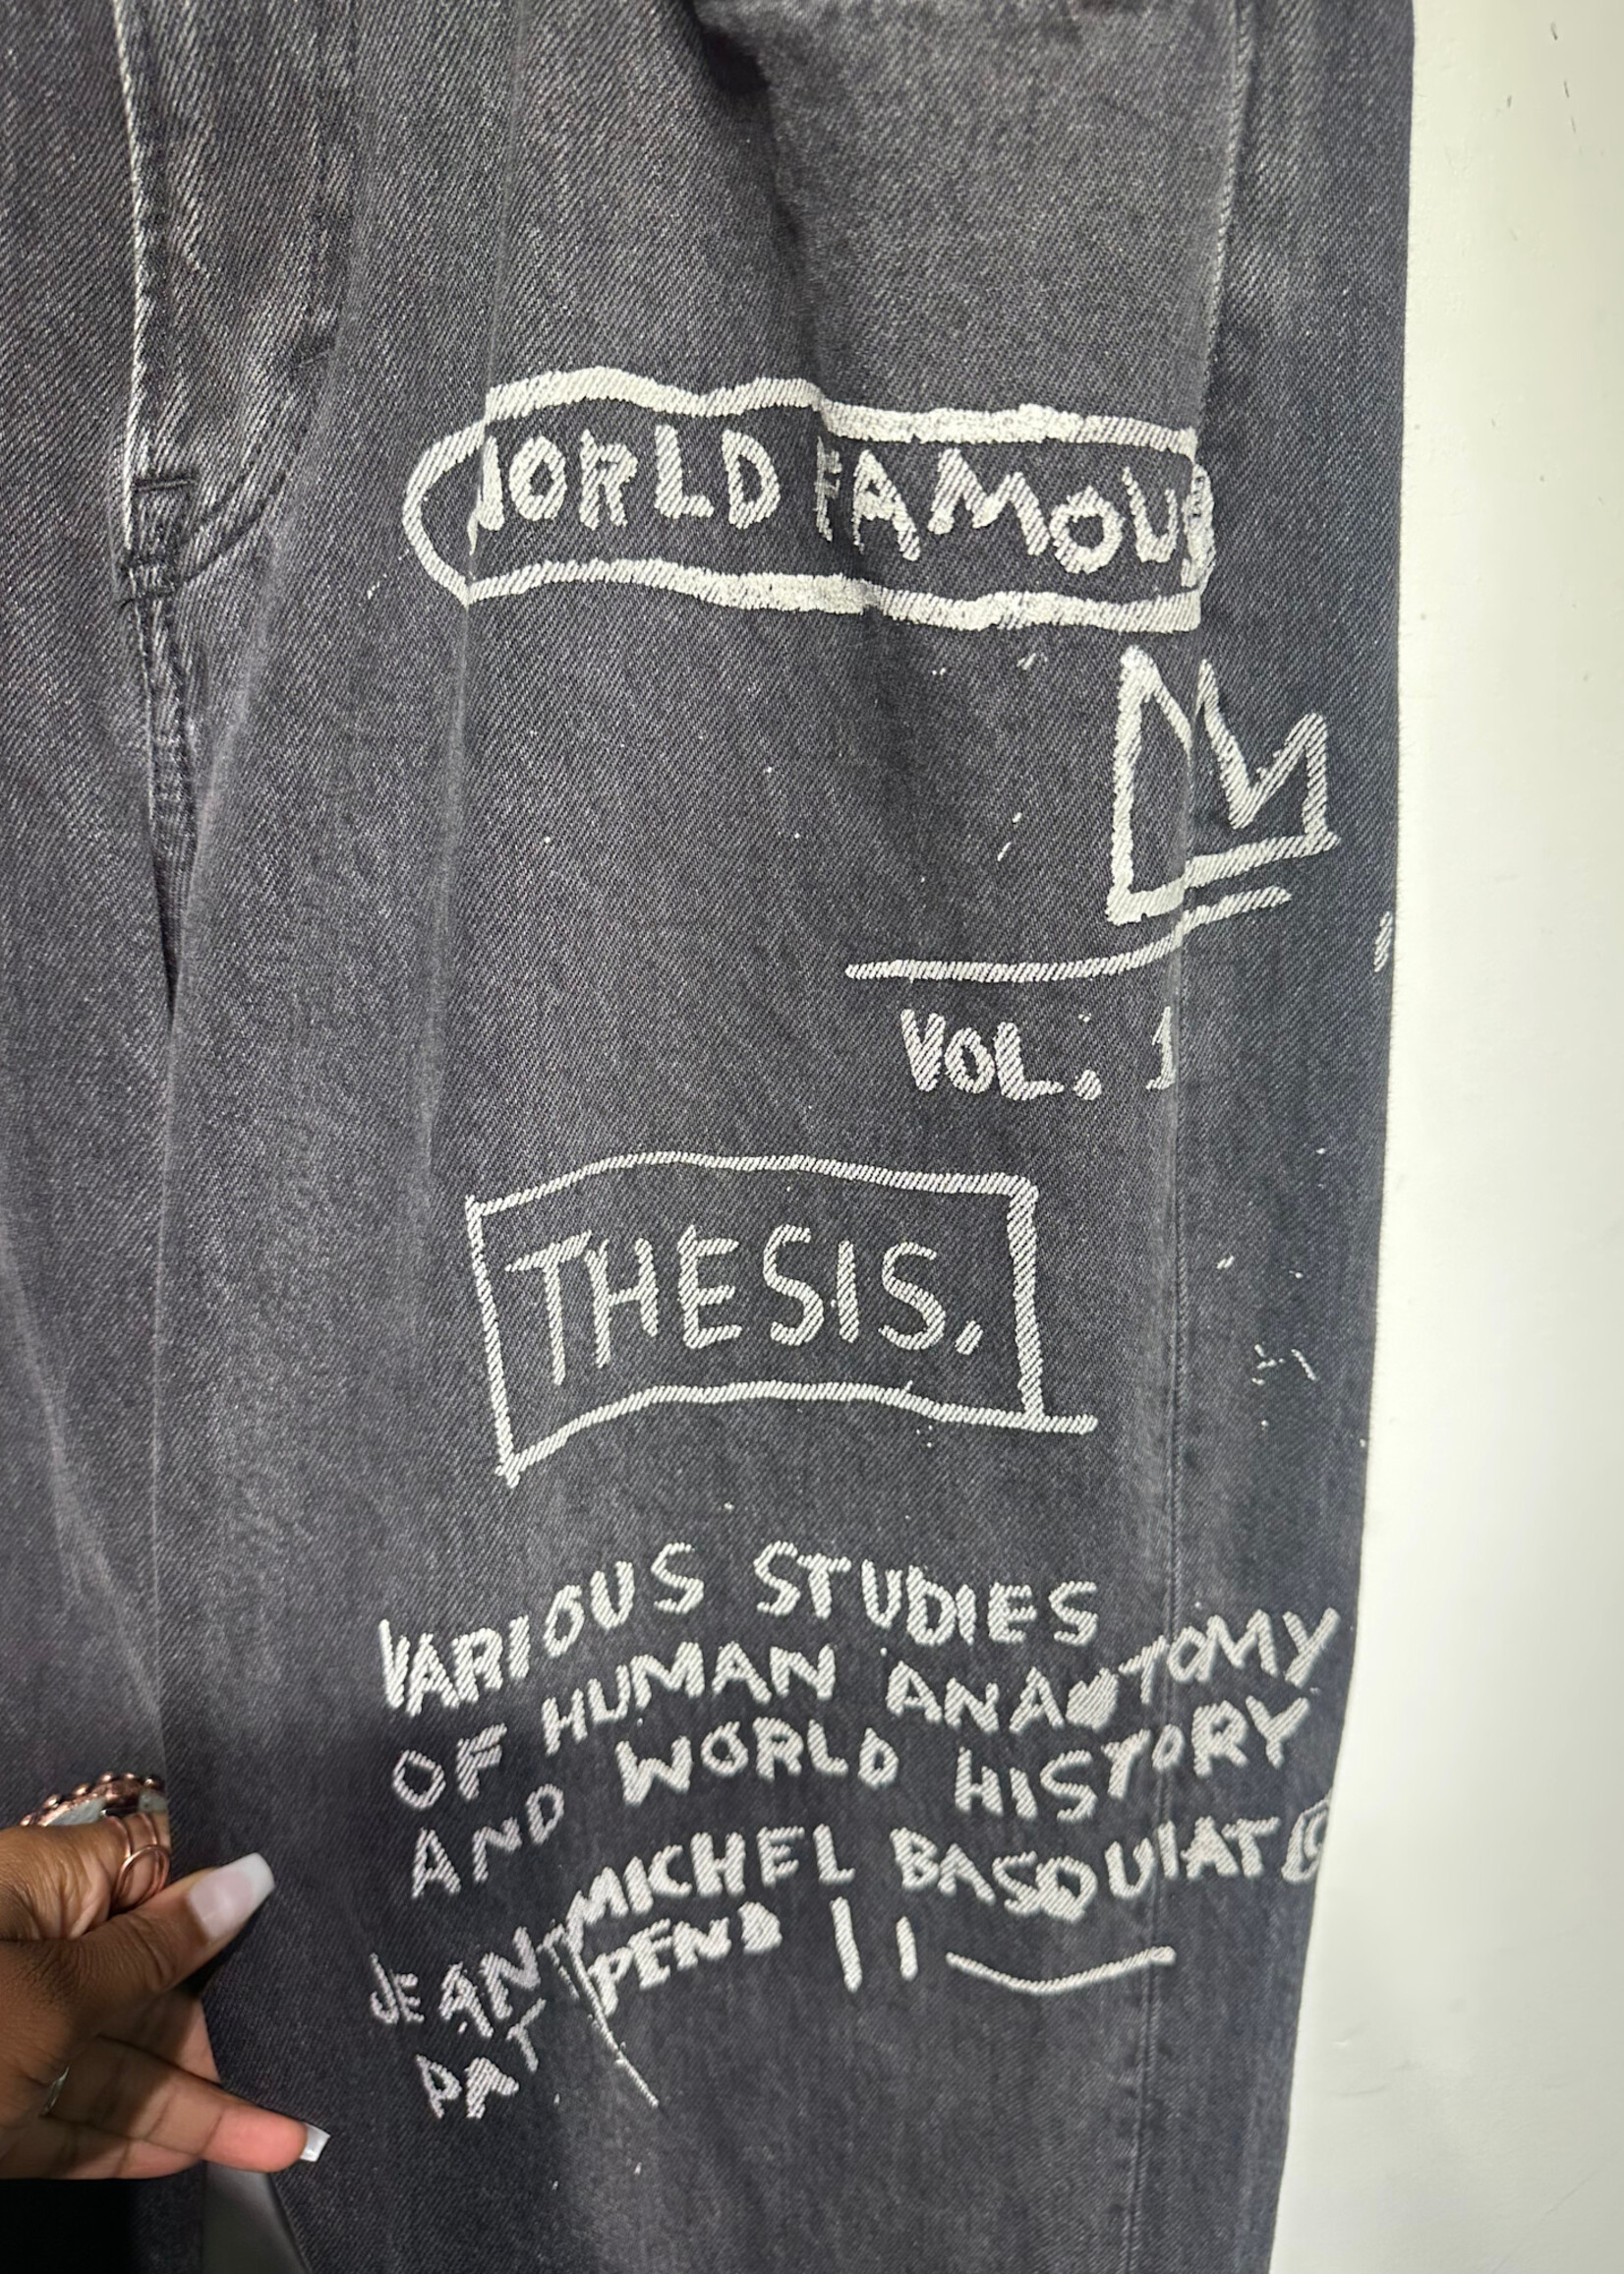 WORLD FAMOUS
VOL. 1
THESIS.
VARIOUS STUDIES
OF HUMAN ANATOMY
AND WORLD HISTORY
JEAN MICHEL BASQUIAT ©
PAT PEND 11